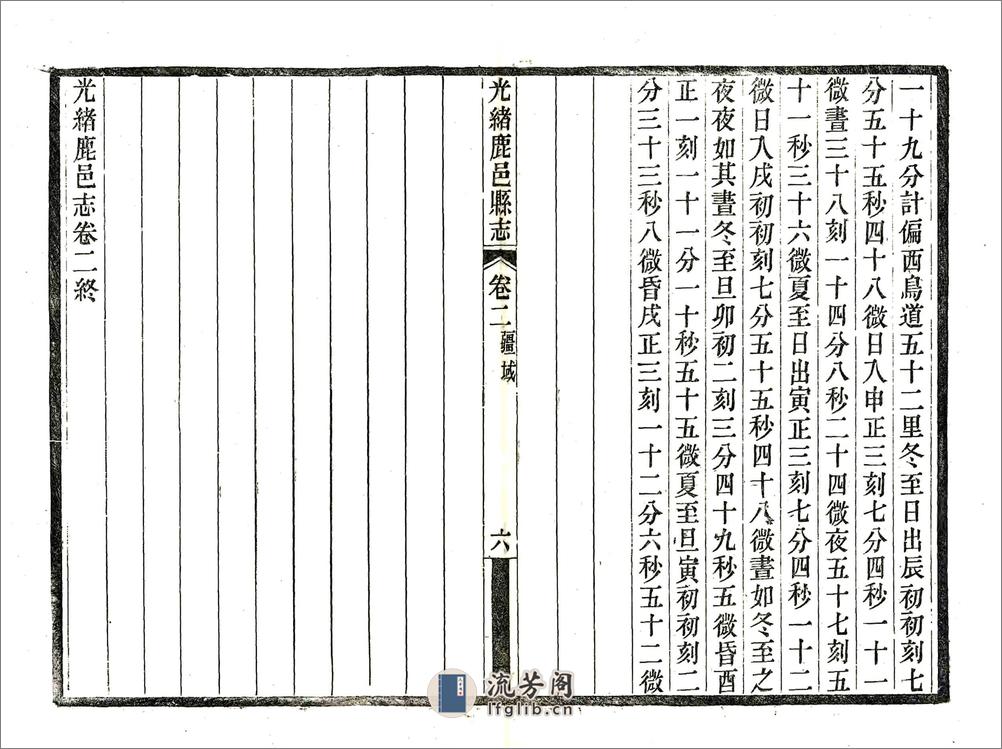 一十九分計偏西鳥道五十二里冬至日出辰初初刻七
分五十五秒四十八微日入申正三刻七分四秒一十一
微晝三十八刻一十四分八秒二十四微夜五十七刻五
十一秒三十六微夏至日出寅正三刻七分四秒一十二
微日入戌初初刻七分五十五秒四十八微晝如冬至之
夜夜如其晝冬至旦卯初二刻三分四十九秒五微昏酉
正一刻一十一分一十秒五十五微夏至旦寅初初刻二
分三十三秒八微昏戌正三刻一十二分六秒五十二微
光緒鹿邑縣志
卷二
疆域
六
光緒鹿邑志卷二終
流芳阁
lfglib.cn